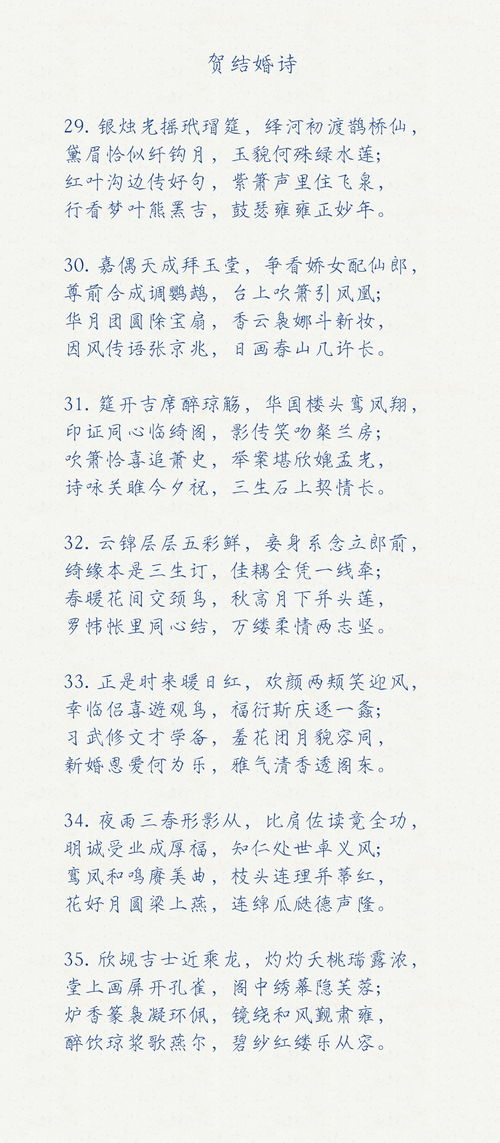 贺结婚诗
29. 银烛光摇玳瑁筵，绛河初渡鹊桥仙，
黛眉恰似纤钩月，玉貌何殊绿水莲；
红叶沟边传好句，紫箫声里住飞泉，
行看梦叶熊罴吉，鼓瑟雍雍正妙年。
30. 嘉偶天成拜玉堂，争看娇女配仙郎，
尊前合成调鹦鹉，台上吹箫引凤凰；
华月团圆除宝扇，香云袅娜斗新妆，
因风传语张京兆，日画春山几许长。
31. 筵开吉席醉琼觞，华国楼头鸾凤翔，
印证同心临绮阁，影传笑吻粲兰房；
吹箫恰喜追萧史，举案堪欣媲孟光，
诗咏关雎今夕祝，三生石上契情长。
32. 云锦层层五彩鲜，妾身系念立郎前，
绮缘本是三生订，佳耦全凭一线牵；
春暖花间交颈鸟，秋高月下并头莲，
罗帏帐里同心结，万缕柔情两志坚。
33. 正是时来暖日红，欢颜两颊笑迎风，
幸临侣喜遊观鸟，福衍斯庆逐一螽；
习武修文才学备，羞花闭月貌容同，
新婚恩爱何为乐，雅气清香透阁东。
34. 夜雨三春形影从，比肩佐读竟全功，
明诚受业成厚福，知仁处世卓义风；
鸾凤和鸣赓美曲，枝头连理并蒂红，
花好月圆梁上燕，连绵瓜瓞德声隆。
35. 欣觇吉士近乘龙，灼灼夭桃瑞露浓，
堂上画屏开孔雀，阁中绣幕隐芙蓉；
炉香篆袅凝环佩，镜绕和风觐肃雍，
醉饮琼浆歌燕尔，碧纱红缕乐从容。